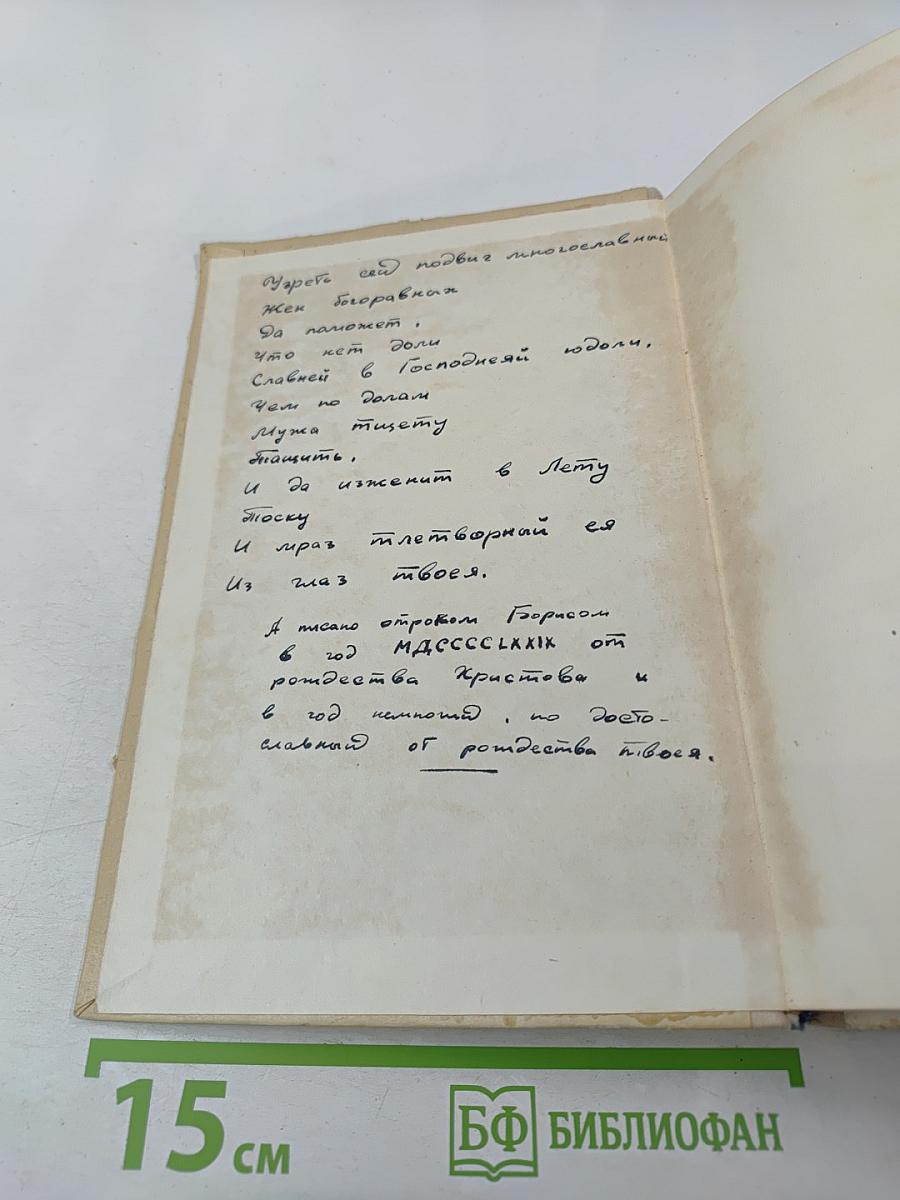 Узреть сей подвиг многославный
Жен богоравных
Да поможет,
Что нет доли
Славней в Господней юдоли,
Чем по долам
Мужа тщету
Тащить,
И да изженит в Лету
Тоску
И мраз тлетворный ея
Из глаз твоея.
А писано отроком Борисом
в год МДССССLXXIX от
рождества Христова и
в год немногий, но досто-
славный от рождества твоея.
15 см
БФ БИБЛИОФАН